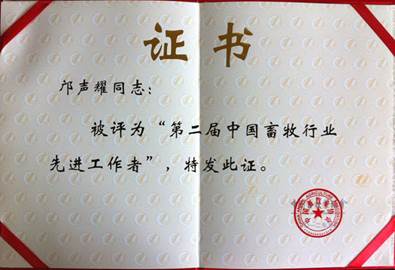 证书
邝声耀同志：
被评为“第二届中国畜牧行业
先进工作者”，特发此证。